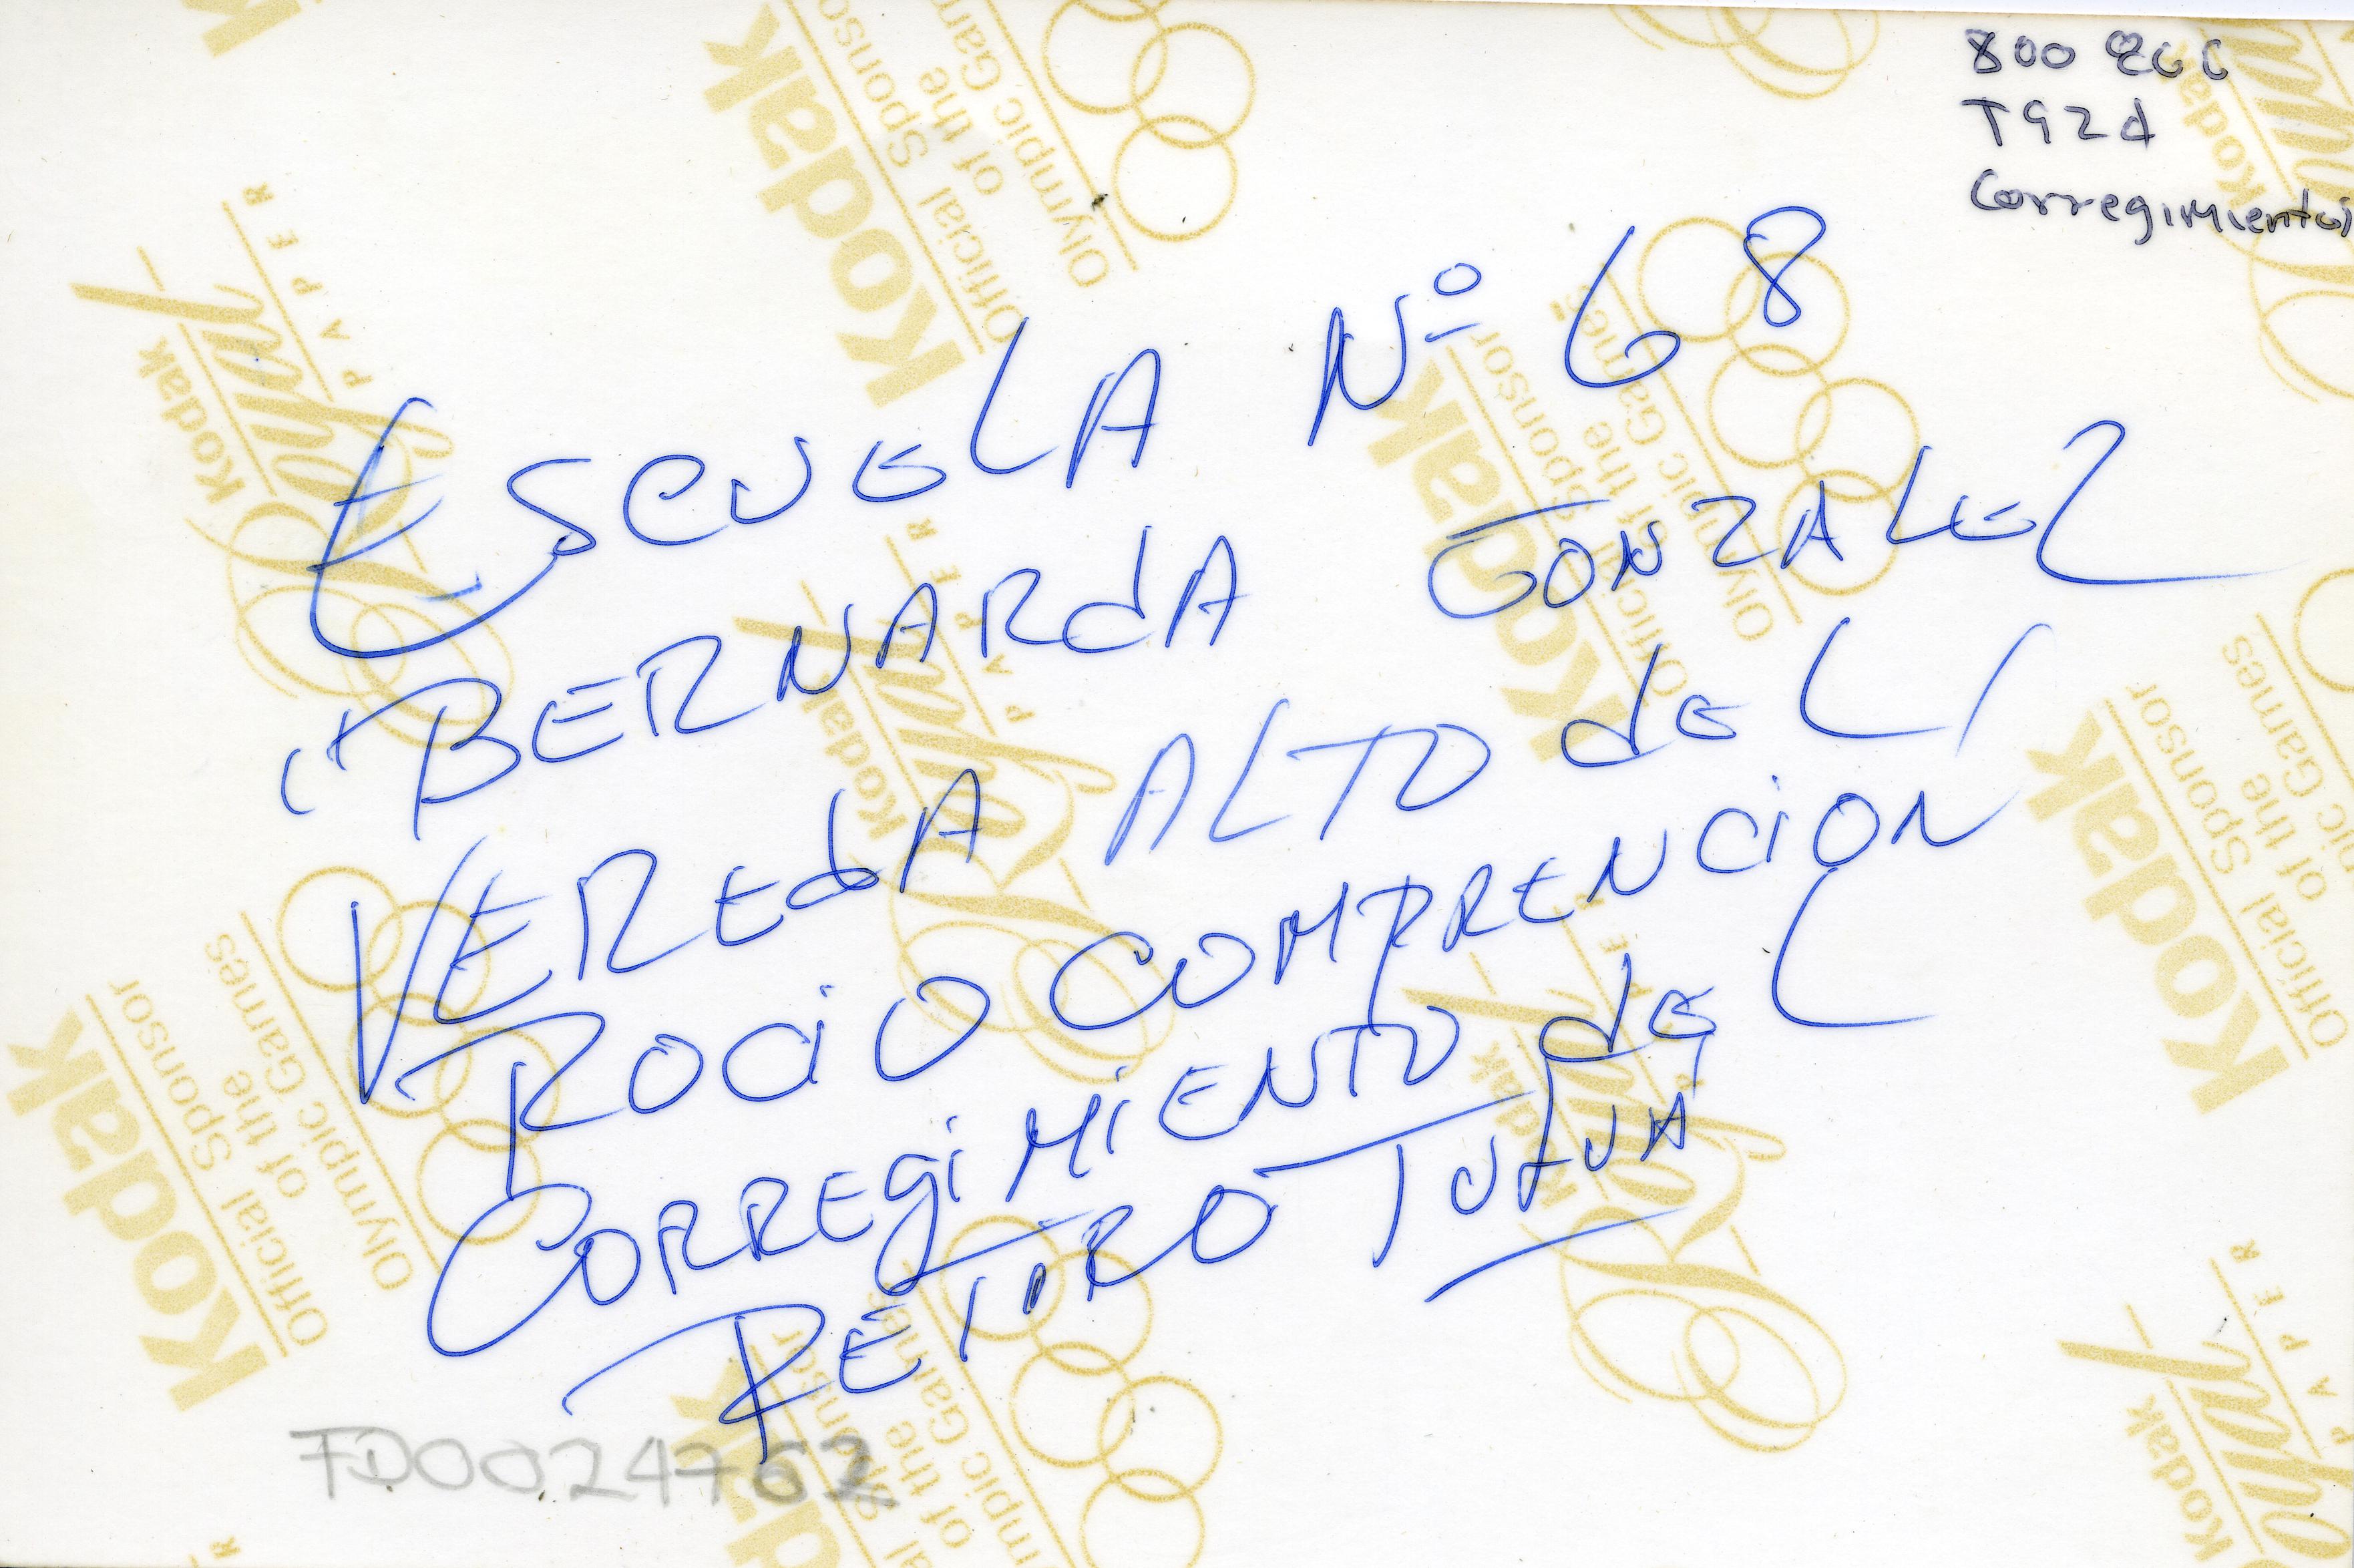 800 866
T92d
Corregimientos
ESCUELA Nº 68
"BERNARdA GONZALEZ
VEREdA ALTO deL
ROCiO COMPRENCiON
CORREgiMiENTO deL
RETiRO TULUA
FD0024762
Kodak
Official Sponsor
of the
Olympic Games
Kodak
Royal
PAPER